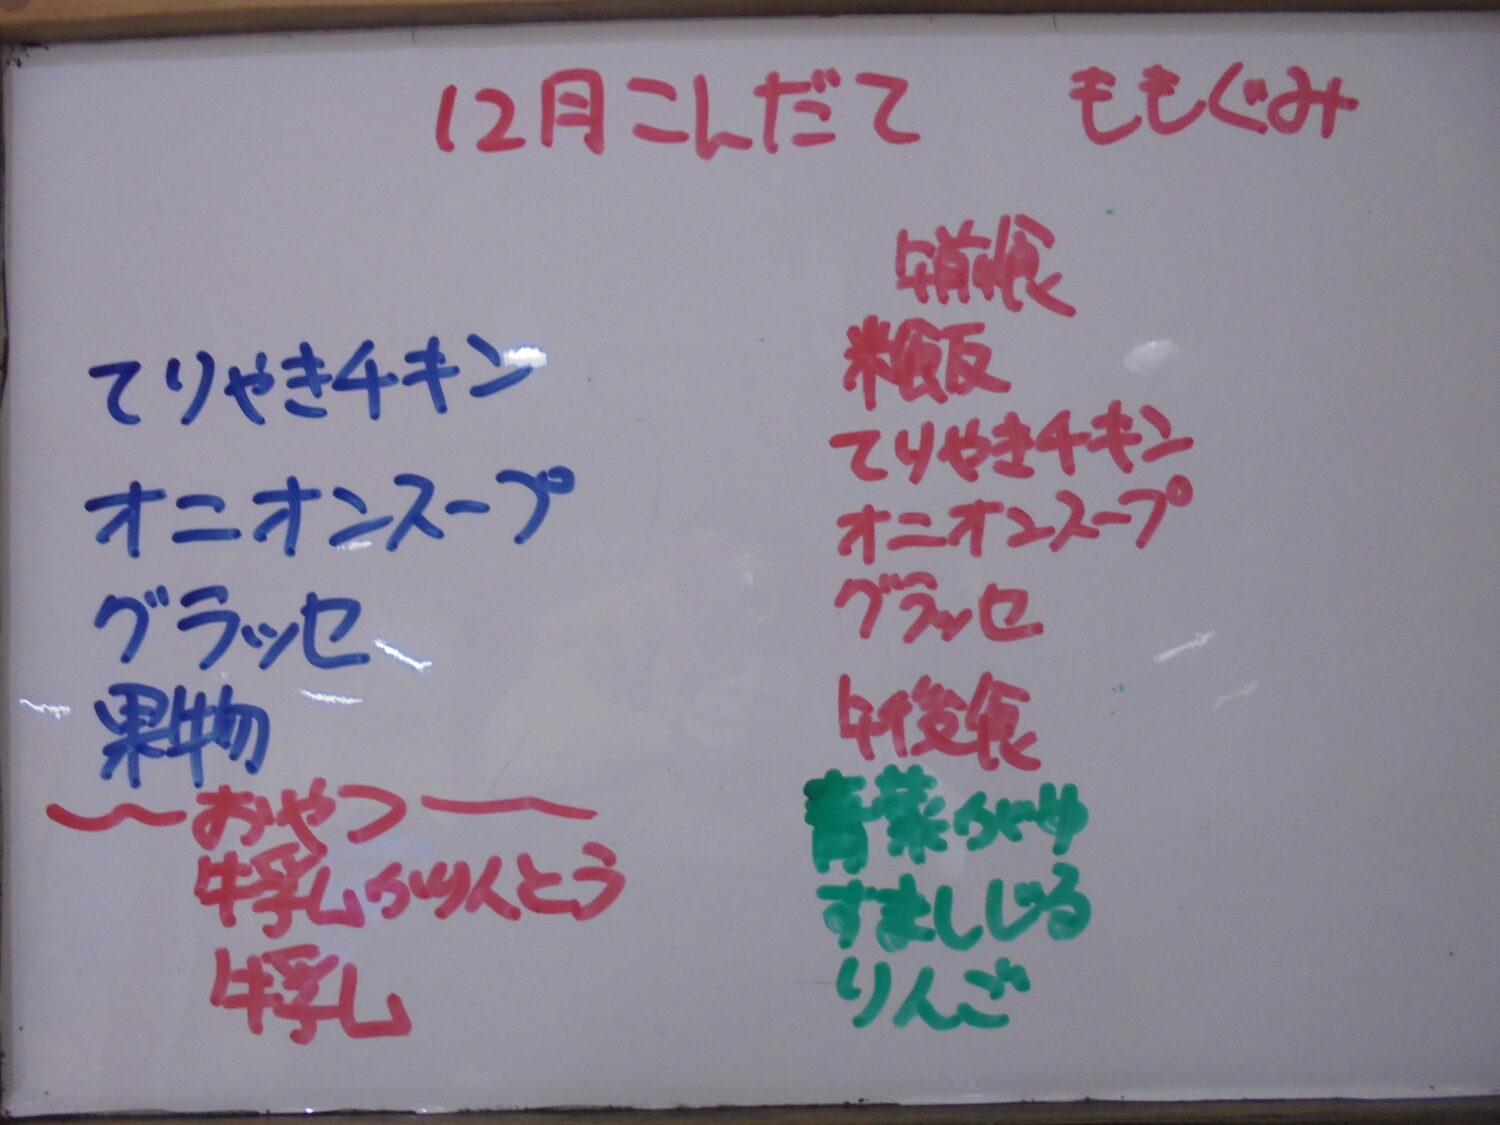 12月こんだて ももぐみ
てりやきチキン
オニオンスープ
グラッセ
果物
おやつ
牛乳かりんとう
牛乳
午前食
米飯
てりやきチキン
オニオンスープ
グラッセ
午後食
青菜がゆ
すましじる
りんご